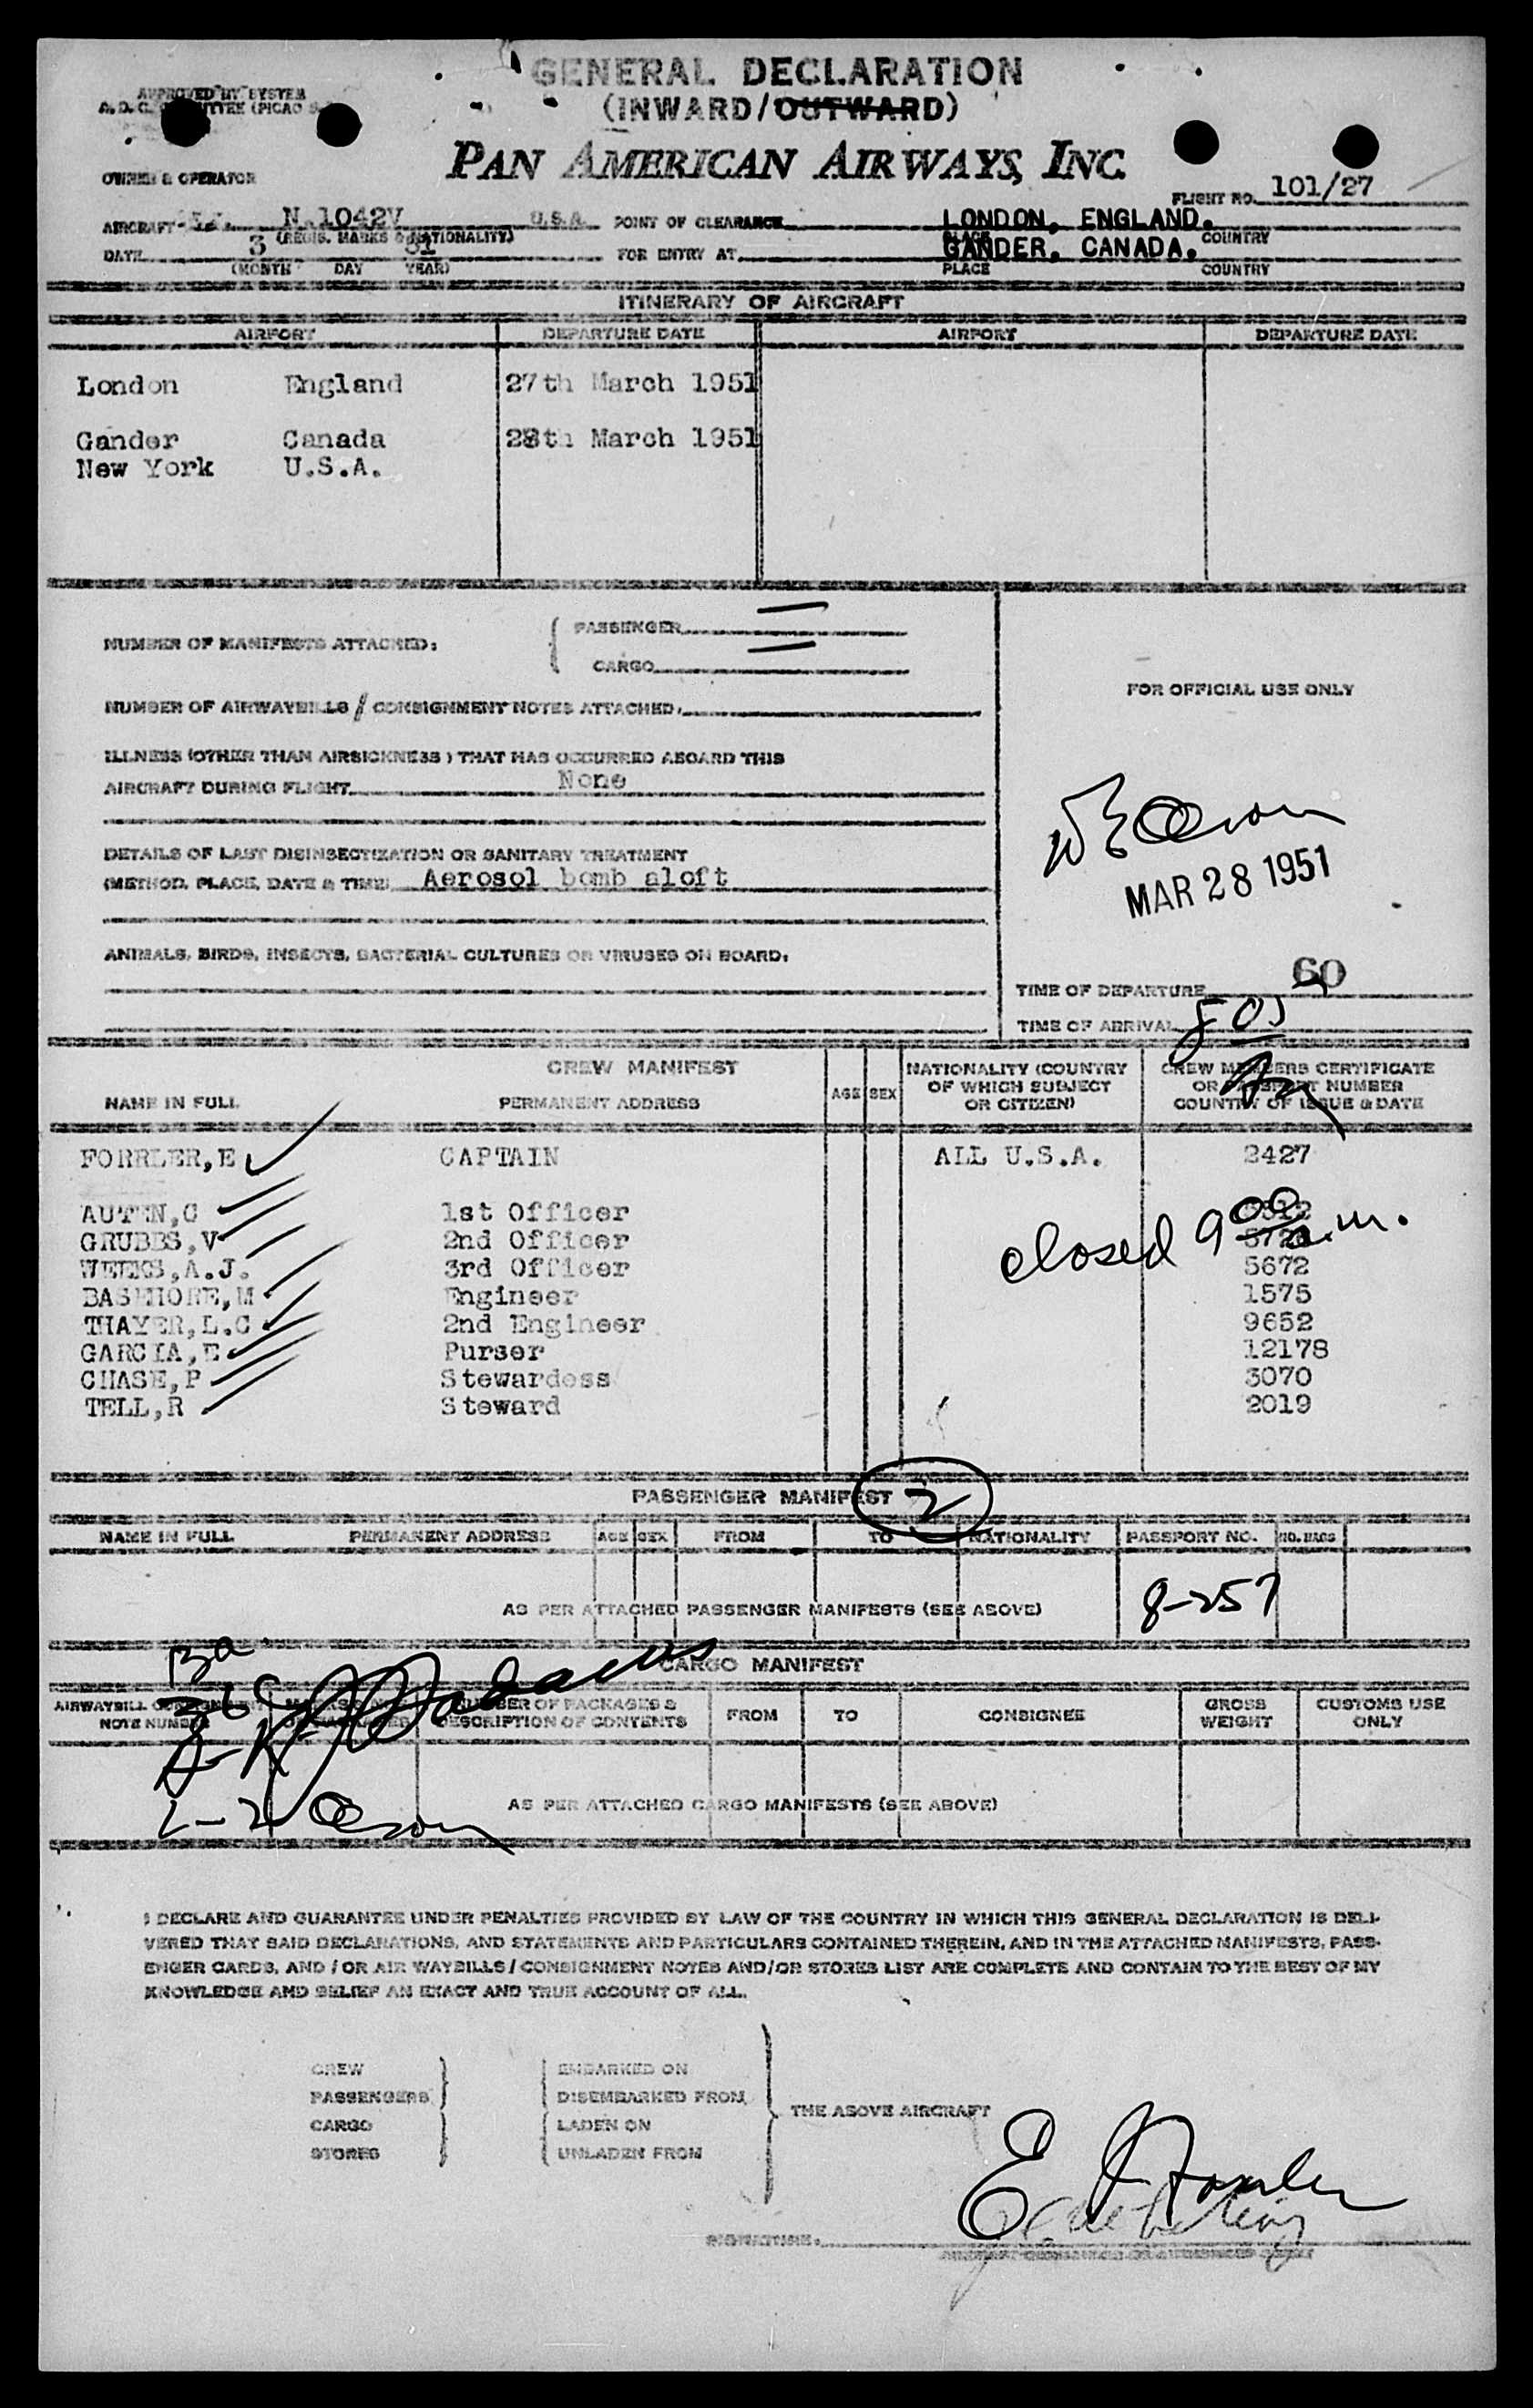 GENERAL DECLARATION
(INWARD/OUTWARD)
APPROVED BY SYSTEM
PAN AMERICAN AIRWAYS, INC.
OWNER & OPERATOR
FLIGHT NO. 101/27
AIRCRAFT N.1042V U.S.A. POINT OF CLEARANCE LONDON, ENGLAND.
(REGIS. MARKS & NATIONALITY) PLACE COUNTRY
DATE 3 51 FOR ENTRY AT GANDER, CANADA.
(MONTH DAY YEAR) PLACE COUNTRY
ITINERARY OF AIRCRAFT
AIRPORT DEPARTURE DATE AIRPORT DEPARTURE DATE
London England 27th March 1951
Gander Canada 28th March 1951
New York U.S.A.
NUMBER OF MANIFESTS ATTACHED: PASSENGER
CARGO
FOR OFFICIAL USE ONLY
NUMBER OF AIRWAYBILLS / CONSIGNMENT NOTES ATTACHED.
ILLNESS (OTHER THAN AIRSICKNESS) THAT HAS OCCURRED ABOARD THIS
AIRCRAFT DURING FLIGHT None
DETAILS OF LAST DISINSECTIZATION OR SANITARY TREATMENT
(METHOD, PLACE, DATE & TIME) Aerosol bomb aloft
MAR 28 1951
ANIMALS, BIRDS, INSECTS, BACTERIAL CULTURES OR VIRUSES ON BOARD:
60
TIME OF DEPARTURE
TIME OF ARRIVAL
CREW MANIFEST
NAME IN FULL PERMANENT ADDRESS AGE SEX NATIONALITY (COUNTRY OF WHICH SUBJECT OR CITIZEN) CREW MEMBERS CERTIFICATE OR PASSPORT NUMBER COUNTRY OF ISSUE & DATE
FORRLER, E CAPTAIN ALL U.S.A. 2427
AUTEN, C 1st Officer
GRUBBS, V 2nd Officer
closed 9 00 a.m.
WEEKS, A.J. 3rd Officer 5672
BASEHORE, M Engineer 1575
THAYER, L.C 2nd Engineer 9652
GARCIA, E Purser 12178
CHASE, P Stewardess 3070
TELL, R Steward 2019
PASSENGER MANIFEST 2
NAME IN FULL PERMANENT ADDRESS AGE SEX FROM TO NATIONALITY PASSPORT NO. NO. BAGS
AS PER ATTACHED PASSENGER MANIFESTS (SEE ABOVE) 8-257
CARGO MANIFEST
AIRWAYBILL CONSIGNMENT NOTE NUMBER NUMBER OF PACKAGES & DESCRIPTION OF CONTENTS FROM TO CONSIGNEE GROSS WEIGHT CUSTOMS USE ONLY
AS PER ATTACHED CARGO MANIFESTS (SEE ABOVE)
I DECLARE AND GUARANTEE UNDER PENALTIES PROVIDED BY LAW OF THE COUNTRY IN WHICH THIS GENERAL DECLARATION IS DELI-
VERED THAT SAID DECLARATIONS, AND STATEMENTS AND PARTICULARS CONTAINED THEREIN, AND IN THE ATTACHED MANIFESTS, PASS-
ENGER CARDS, AND / OR AIR WAYBILLS / CONSIGNMENT NOTES AND/OR STORES LIST ARE COMPLETE AND CONTAIN TO THE BEST OF MY
KNOWLEDGE AND BELIEF AN EXACT AND TRUE ACCOUNT OF ALL.
CREW EMBARKED ON
PASSENGERS DISEMBARKED FROM
THE ABOVE AIRCRAFT
CARGO LADEN ON
STORES UNLADEN FROM
SIGNATURE.